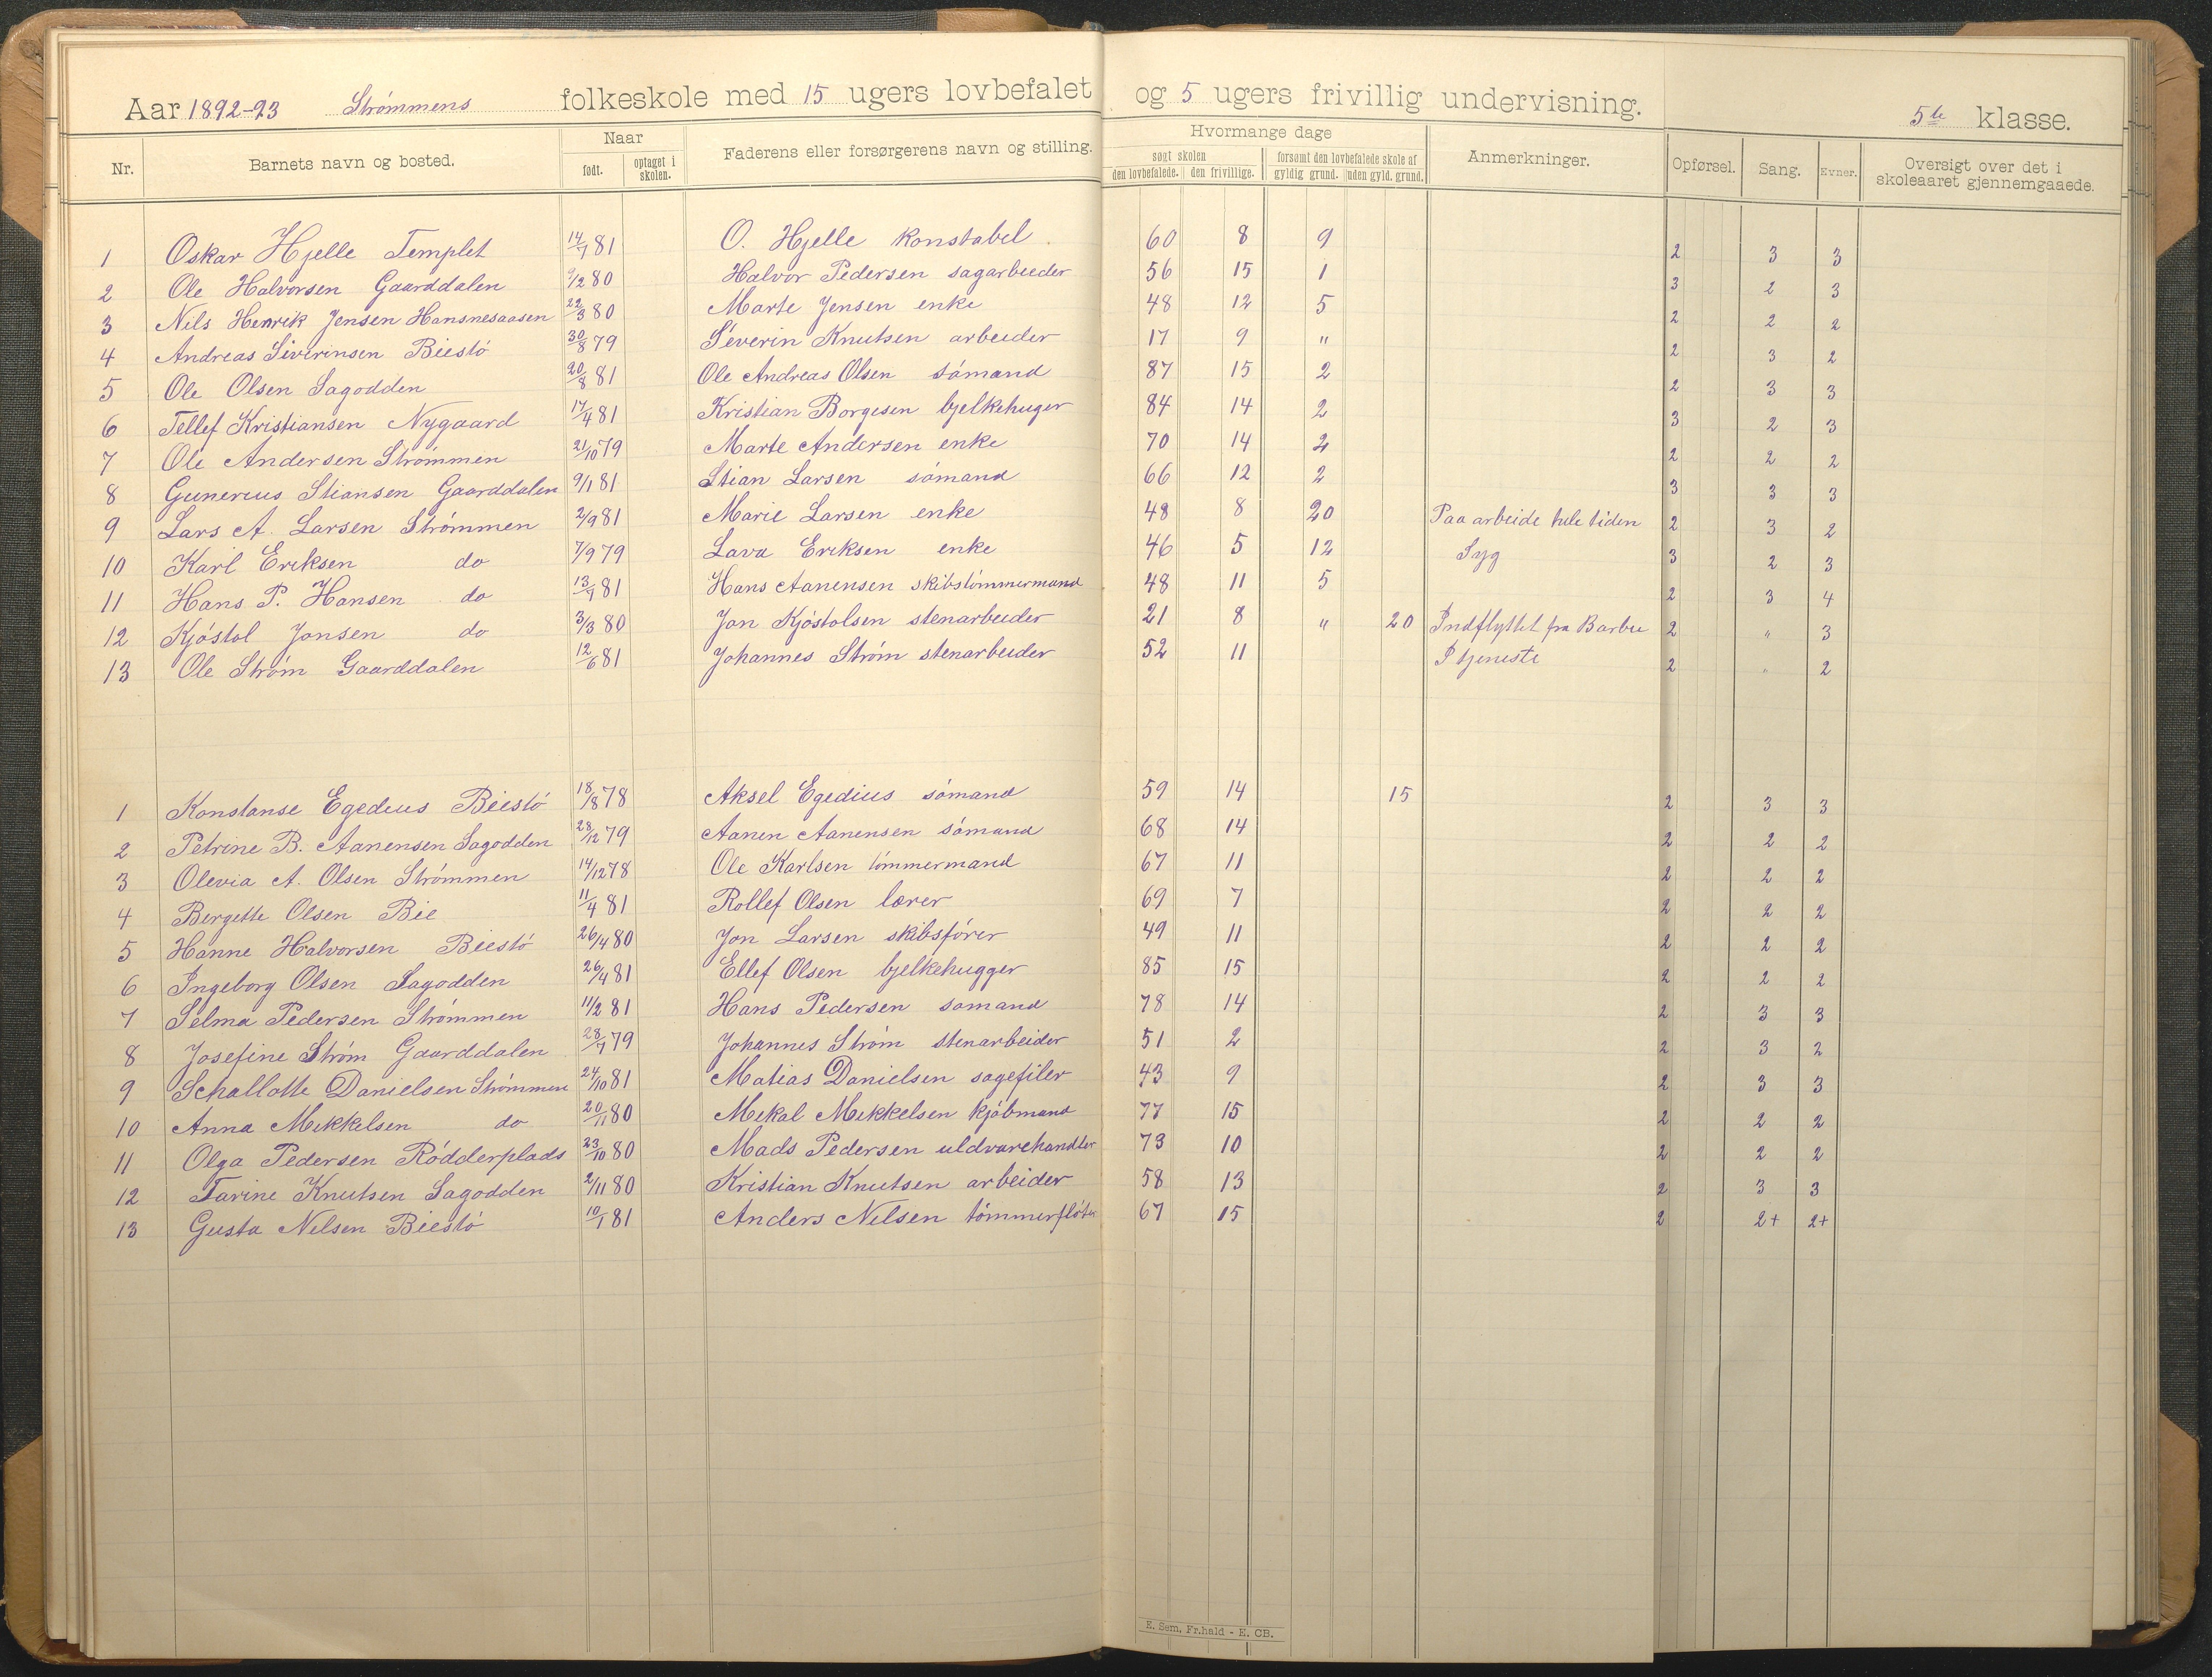 Aar 1892-93 Strømmens folkeskole med 15 ugers lovbefalet og 5 ugers frivillig undervisning. 5te klasse.
Nr. Barnets navn og bosted. Naar født. optaget i skolen. Faderens eller forsørgerens navn og stilling. Hvormange dage søgt skolen den lovbefalede. den frivillige. forsømt den lovbefalede skole af gyldig grund. uden gyld. grund. Anmerkninger. Opførsel. Sang. Evner. Oversigt over det i skoleaaret gjennemgaaede.
1 Oskar Hjelle Templet 14/7 81 O. Hjelle konstabel 60 8 9 2 3 3
2 Ole Halvorsen Gaarddalen 9/2 80 Halvor Pedersen sagarbeider 56 15 1 3 2 3
3 Nils Henrik Jensen Hansnesaasen 22/3 80 Marte Jensen enke 48 12 5 2 2 2
4 Andreas Siverinsen Biestö 30/8 79 Severin Knutsen arbeider 17 9 " 2 3 2
5 Ole Olsen Sagodden 20/8 81 Ole Andreas Olsen sömand 87 15 2 2 3 3
6 Tellef Kristiansen Nygaard 17/4 81 Kristian Borgesen bjelkehuger 84 14 2 3 2 3
7 Ole Andersen Strömmen 21/10 79 Marte Andersen enke 70 14 2 2 2 2
8 Gunerius Stiansen Gaarddalen 9/1 81 Stian Larsen sömand 66 12 2 3 3 3
9 Lars A. Larsen Strömmen 2/9 81 Marie Larsen enke 48 8 20 Paa arbeide hele tiden 2 3 2
10 Karl Eriksen do 7/9 79 Lava Eriksen enke 46 5 12 Syg 3 2 3
11 Hans P. Hansen do 13/7 81 Hans Aanensen skibstömmermand 48 11 5 2 3 4
12 Kjöstol Jonsen do 3/3 80 Jon Kjöstolsen stenarbeider 21 8 " 20 Indflyttet fra Barbu 2 " 3
13 Ole Ström Gaarddalen 12/6 81 Johannes Ström stenarbeider 52 11 I tjeneste 2 " 2
1 Konstanse Egedius Biestö 18/8 78 Aksel Egedius sömand 59 14 15 2 3 3
2 Petrine B. Aanensen Sagodden 28/12 79 Aanen Aanensen sömand 68 14 2 2 2
3 Olevia A. Olsen Strömmen 14/12 78 Ole Karlsen tömmermand 67 11 2 2 2
4 Bergette Olsen Bie 11/4 81 Rollef Olsen lærer 69 7 2 2 2
5 Hanne Halvorsen Biestö 26/4 80 Jon Larsen skibsförer 49 11 2 2 2
6 Ingeborg Olsen Sagodden 26/4 81 Ellef Olsen bjelkehugger 85 15 2 2 2
7 Selma Pedersen Strömmen 11/2 81 Hans Pedersen somand 78 14 2 3 3
8 Josefine Ström Gaarddalen 28/7 79 Johannes Ström stenarbeider 51 2 2 3 2
9 Schallotte Danielsen Strömmen 24/10 81 Matias Danielsen sagefiler 43 9 2 3 3
10 Anna Mikkelsen do 20/11 80 Mekal Mikkelsen kjöbmand 77 15 2 2 2
11 Olga Pedersen Rödderplads 23/10 80 Mads Pedersen uldvarehandler 73 10 2 2 2
12 Tarine Knutsen Sagodden 2/11 80 Kristian Knutsen arbeider 58 13 2 3 3
13 Gusta Nilsen Biestö 10/1 81 Anders Nilsen tömmerflöter 67 15 2 2+ 2+
E. Sem, Fr.hald - E. CB.